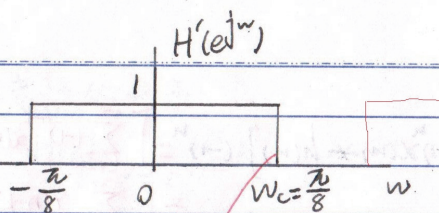 H'(e^{jw})
1
-π/8 0 w_c = π/8 w